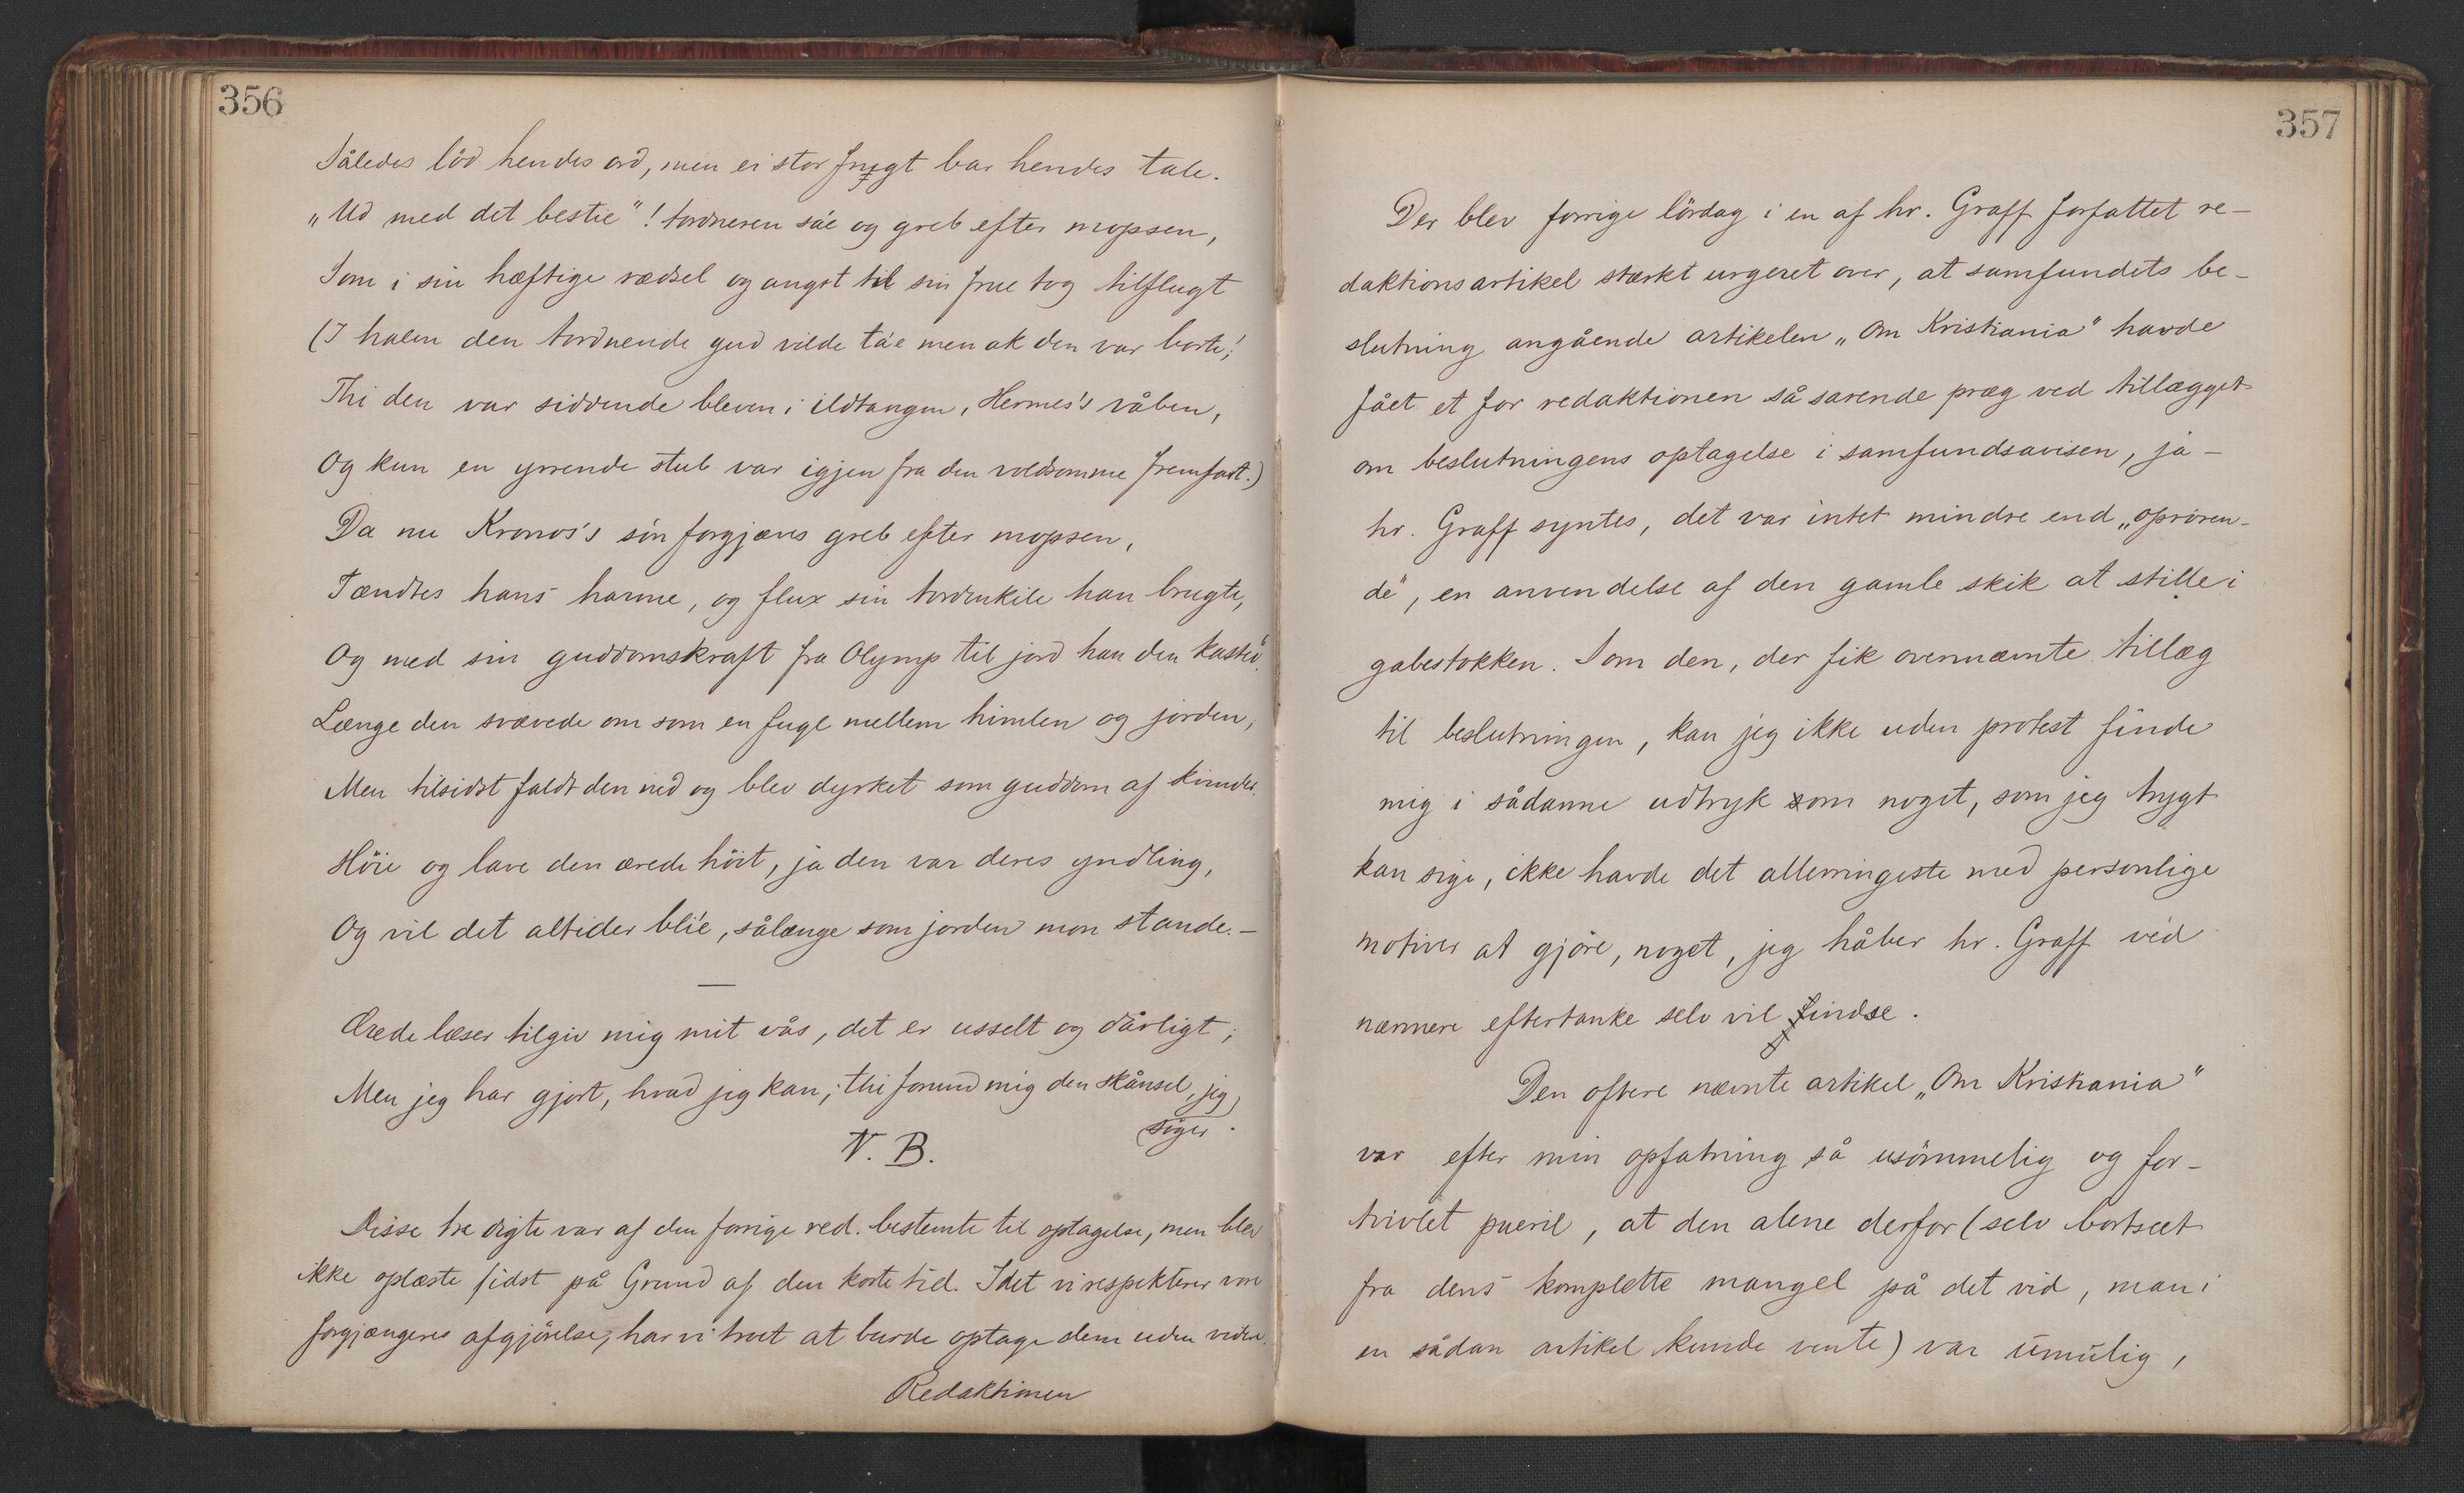 356
Således löd hendes ord, men ei stor frugt bar hendes tale.
„Ud med det bestie"! tordneren sáe og greb efter mopsen,
Som i sin hæftige rædsel og angst til sin frue tog tilflugt
(I halen den tordnende gud vilde ta'e men ak den var borte;!
Thi den var siddende bleven i ildtangen, Hermes's våben,
Og kun en yrrende stub var igjen fra den voldsomme fremfart.)
Da nu Kronos's sön forgjæves greb efter mopsen,
Tændtes hans harme, og flux sin tordenkile han brugte,
Og med sin guddomskraft fra Olymp til jord han den kasted.
Længe den svævede om som en fugl mellem himlen og jorden,
Men tilsidst faldt den ned og blev dyrket som guddom af kvinder.
Höie og lave den ærede höit, ja den var deres yndling,
Og vil det altider bli'e, sålænge som jorden mon stande. —
—
Ærede læser tilgiv mig mit vås, det er usselt og dårligt;
Men jeg har gjort, hvad jeg kan; thi forund mig den skånsel, jeg
siger.
N. B.
Disse tre digte var af den forrige red. bestemte til optagelse, men blev
ikke oplæste sidst på Grund af den korte tid. Idet vi respekterer vore
forgjængeres afgjörelse, har vi troet at burde optage dem uden videre.
Redaktionen
357
Der blev forrige lördag i en af hr. Graff forfattet re-
daktionsartikel stærkt urgeret over, at samfundets be-
slutning angående artikelen „Om Kristiania" havde
fået et for redaktionen så sårende præg ved tillægget
om beslutningens optagelse i samfundsavisen, ja —
hr. Graff syntes, det var intet mindre end „oprören-
de", en anvendelse af den gamle skik at stille i
gabestokken. Som den, der fik ovennævnte tillæg
til beslutningen, kan jeg ikke uden protest finde
mig i sådanne udtryk om noget, som jeg trygt
kan sige, ikke havde det allerringeste med personlige
motiver at gjöre, noget, jeg håber hr. Graff ved
nærmere eftertanke selv vil indse.
Den oftere nævnte artikel „Om Kristiania"
var efter min opfatning så usömmelig og for-
tvivlet pueril, at den alene derfor (selv bortseet
fra dens komplette mangel på det vid, man i
en sådan artikel kunde vente) var umulig,